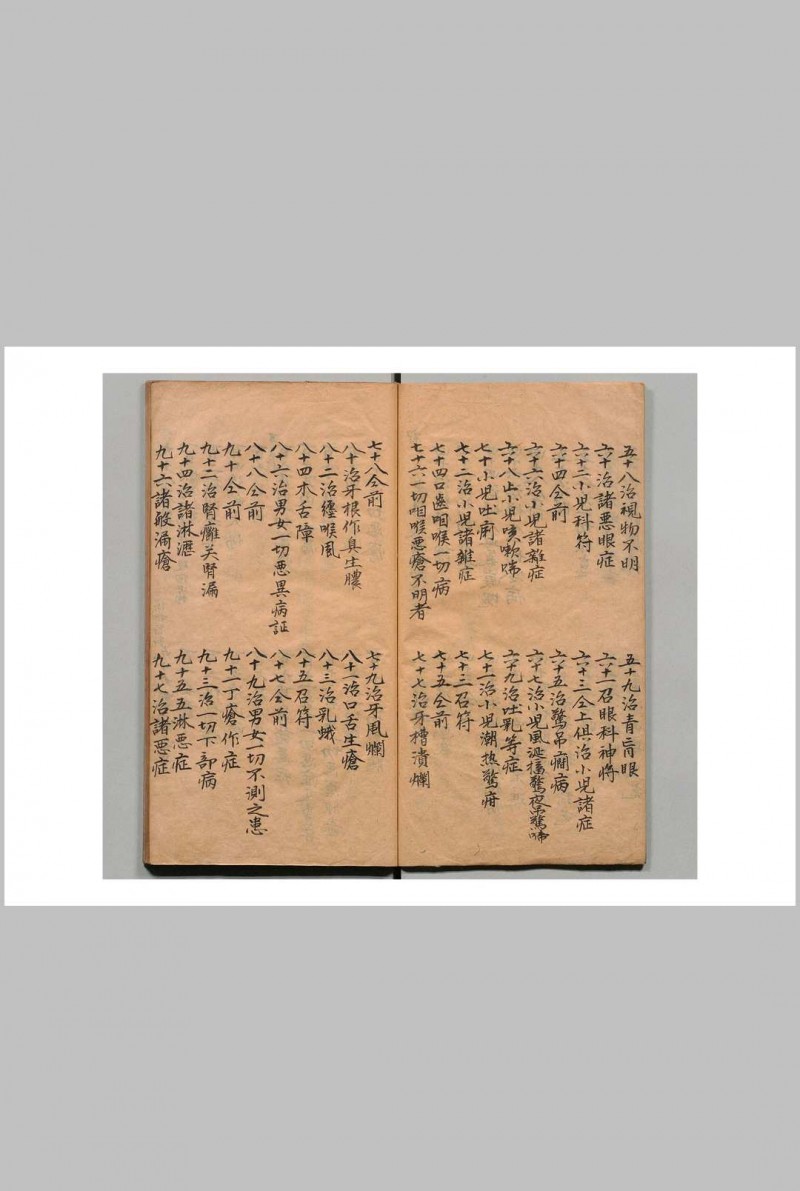 五十八治視物不明
五十九治青盲眼
六十治諸悪眼症
六十一召眼科神将
六十二小児科符
六十三仝上俱治小児諸症
六十四仝前
六十五治驚吊癇病
六十六治小児諸雜症
六十七治小児風涎搐驚夜啼驚啼
六十八止小児咳嗽喘
六十九治吐乳等症
七十小児吐痢
七十一治小児潮热驚疳
七十二治小児諸雜症
七十三召符
七十四口齒咽喉一切病
七十五仝前
七十六一切咽喉悪瘡不明者
七十七治牙槽潰爛
七十八仝前
七十九治牙風爛
八十治牙根作臭生膿
八十一治口舌生瘡
八十二治纏喉風
八十三治乳蛾
八十四木舌障
八十五召符
八十六治男女一切悪異病証
八十七仝前
八十八仝前
八十九治男女一切不測之患
九十仝前
九十一丁瘡作症
九十二治腎癰关腎漏
九十三治一切下部病
九十四治諸淋瀝
九十五五淋悪症
九十六諸般漏瘡
九十七治諸悪症